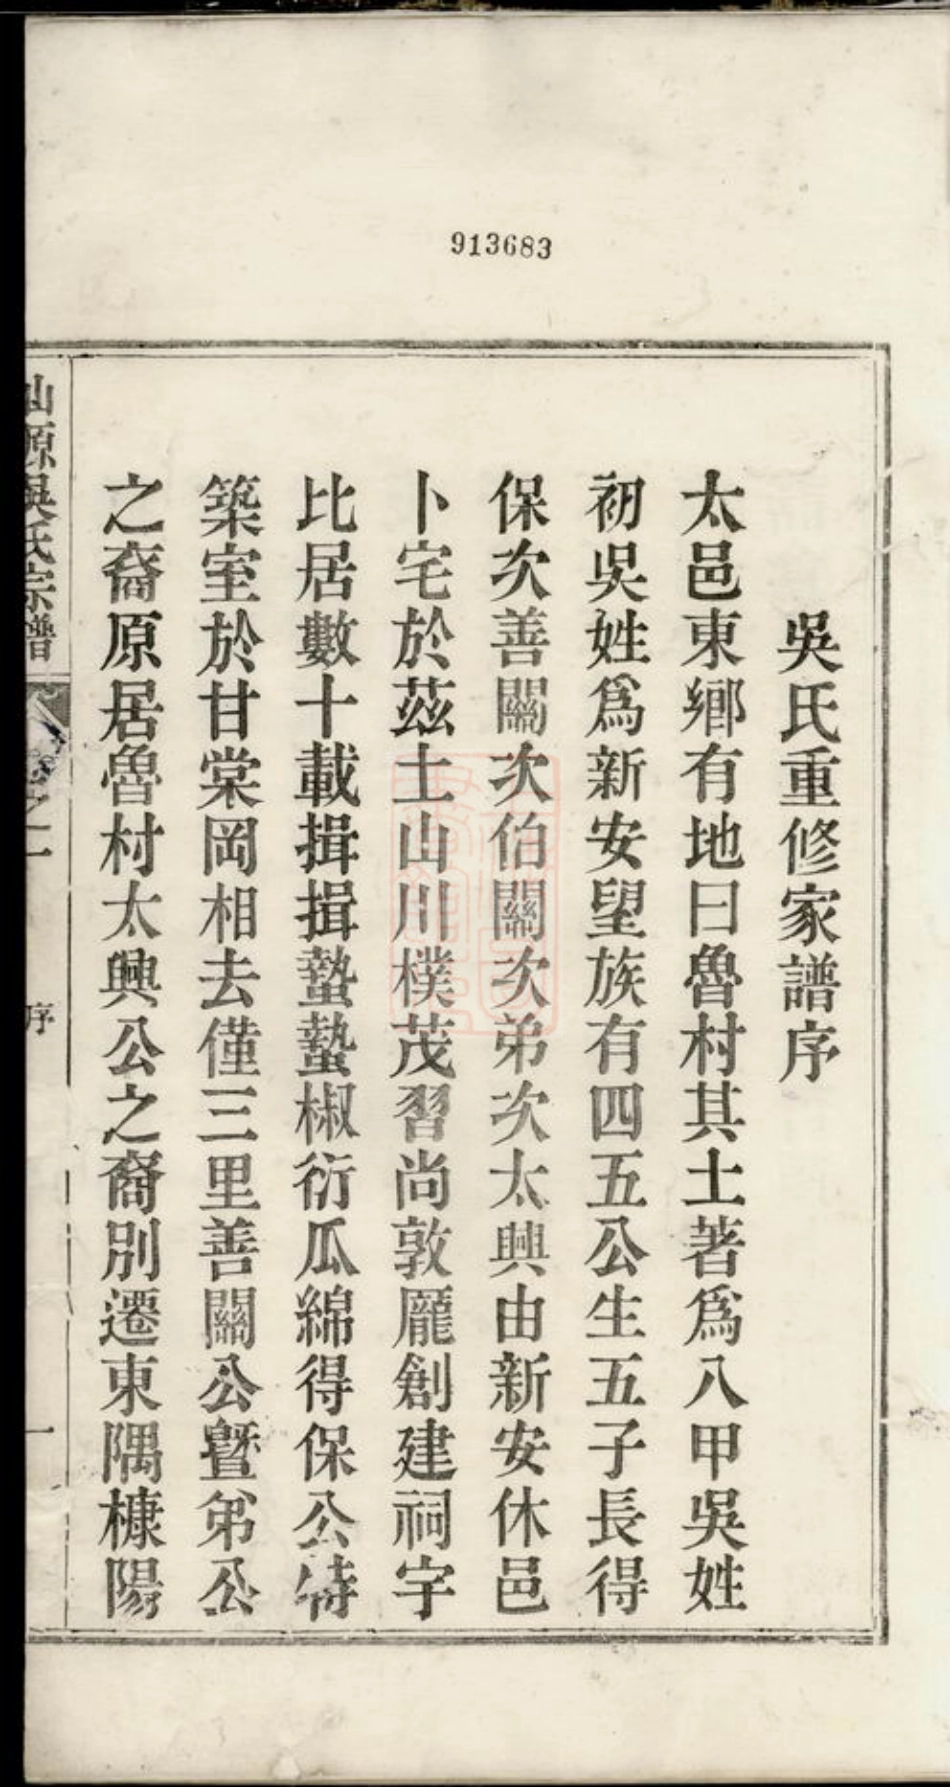 913683
吳氏重修家譜序
太邑東鄉有地曰魯村其土著爲八甲吳姓
初吳姓爲新安望族有四五公生五子長得
保次善關次伯關次弟次太興由新安休邑
卜宅於茲土山川樸茂習尚敦龐創建祠宇
比居數十載揖揖蟄蟄椒衍瓜綿得保公特
築室於甘棠岡相去僅三里善關公暨弟公
之裔原居魯村太興公之裔別遷東隅槺陽
仙源吳氏宗譜
之一
序
一